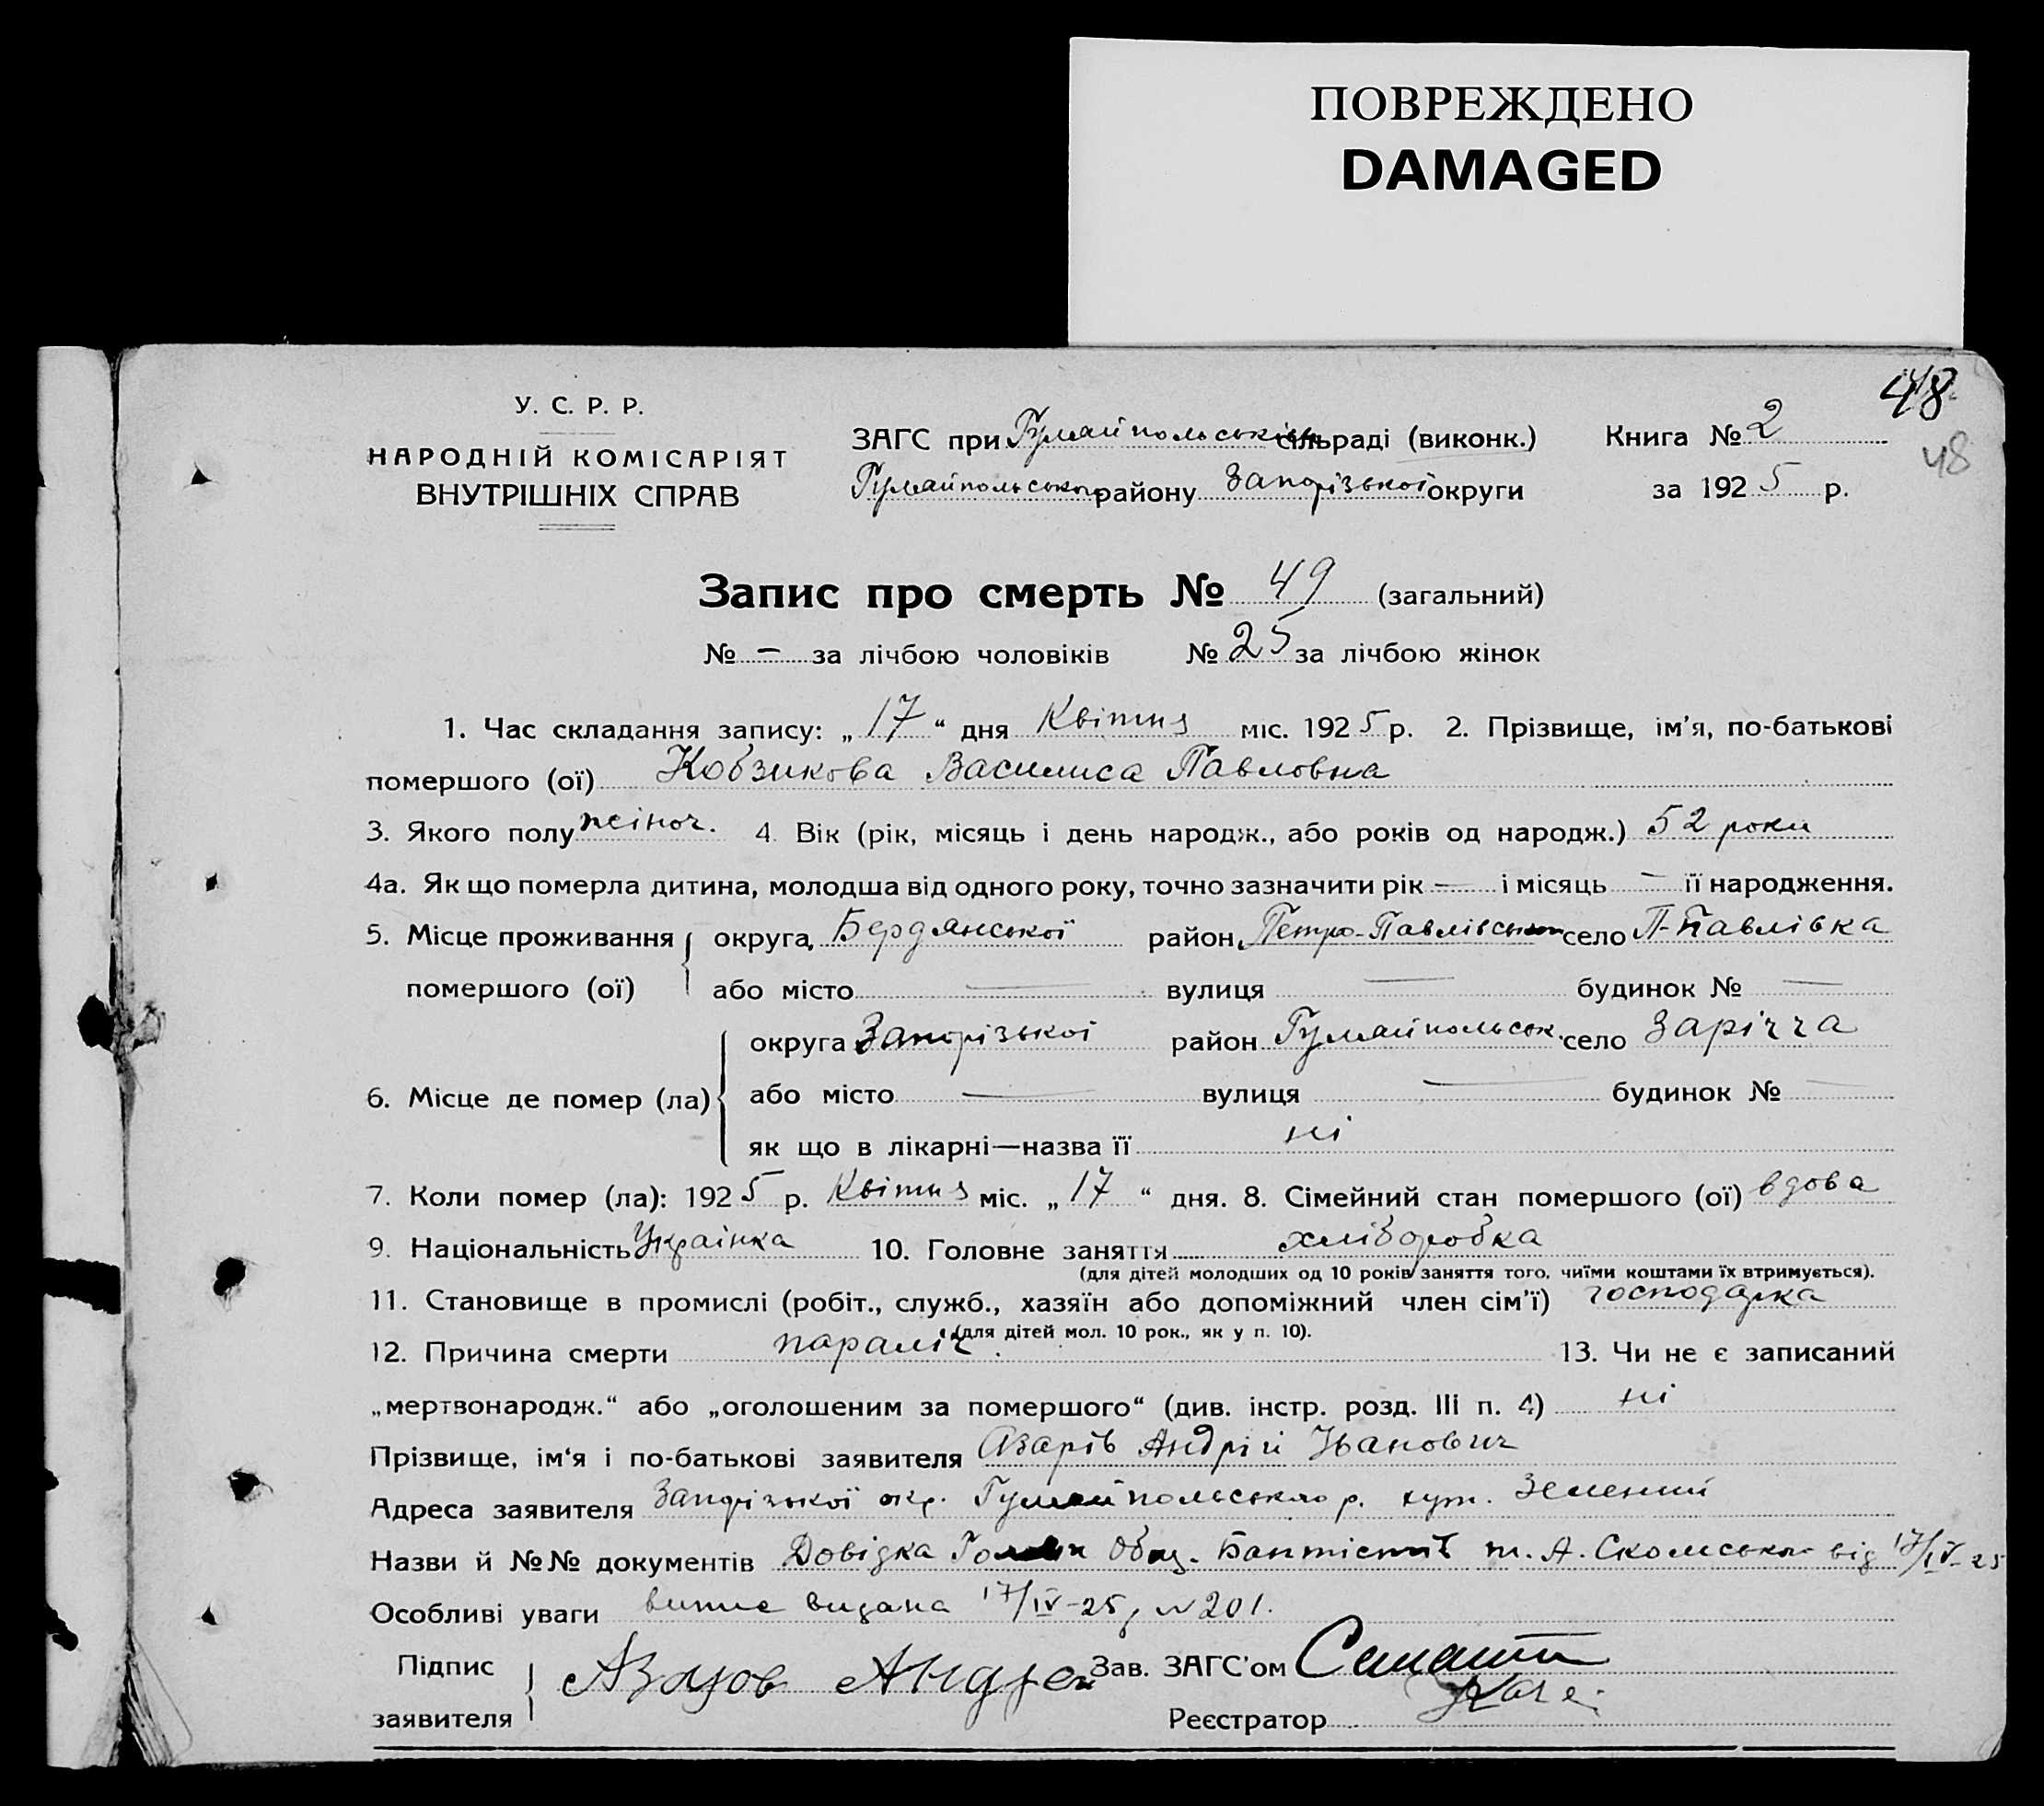 ПОВРЕЖДЕНО
DAMAGED
48
48
У. С. Р. Р.
НАРОДНІЙ КОМІСАРІЯТ
ВНУТРІШНІХ СПРАВ
ЗАГС при Гуляйпольськім сільраді (виконк.)
Гуляйпольського району Запорізької округи
Книга № 2
за 1925 р.
Запис про смерть № 49 (загальний)
№ – за лічбою чоловіків № 25 за лічбою жінок
1. Час складання запису: „17“ дня Квітня міс. 1925 р. 2. Прізвище, ім'я, по-батькові
помершого (ої) Кобзикова Василиса Павловна
3. Якого полу жіноч. 4. Вік (рік, місяць і день народж., або років од народж.) 52 роки
4а. Як що померла дитина, молодша від одного року, точно зазначити рік — і місяць — її народження.
5. Місце проживання помершого (ої) округа Бердянської район Петро-Павлівськ село П-Павлівка
або місто — вулиця — будинок № —
6. Місце де помер (ла) округа Запорізької район Гуляйпольськ. село Заріччя
або місто — вулиця — будинок № —
як що в лікарні—назва її ні
7. Коли помер (ла): 1925 р. Квітня міс. „17“ дня. 8. Сімейний стан помершого (ої) вдова
9. Національність Українка 10. Головне заняття хліборобка
(для дітей молодших од 10 років заняття того, чиїми коштами їх втримується).
11. Становище в промислі (робіт., служб., хазяїн або допоміжний член сім'ї) господарка
(для дітей мол. 10 рок., як у п. 10).
12. Причина смерти параліч. 13. Чи не є записаний
„мертвонародж.“ або „оголошеним за помершого“ (див. інстр. розд. III п. 4) ні
Прізвище, ім'я і по-батькові заявителя Азарів Андрій Іванович
Адреса заявителя Запорізької окр. Гуляйпольського р. хут. Зелений
Назви й №№ документів Довідка Голови Общ. Баптістів т. А. від 17/IV-25
Особливі уваги випис видана 17/IV-25 р. № 201.
Підпис заявителя Азаров Андрей Зав. ЗАГС'ом
Реєстратор